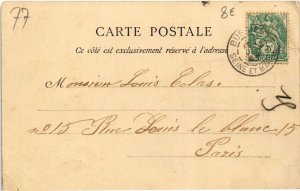 77
8€
CARTE POSTALE
Ce côté est exclusivement réservé à l'adresse
SEINE ET M
Monsieur Louis
no 15 Rue Louis le blanc 15
Paris